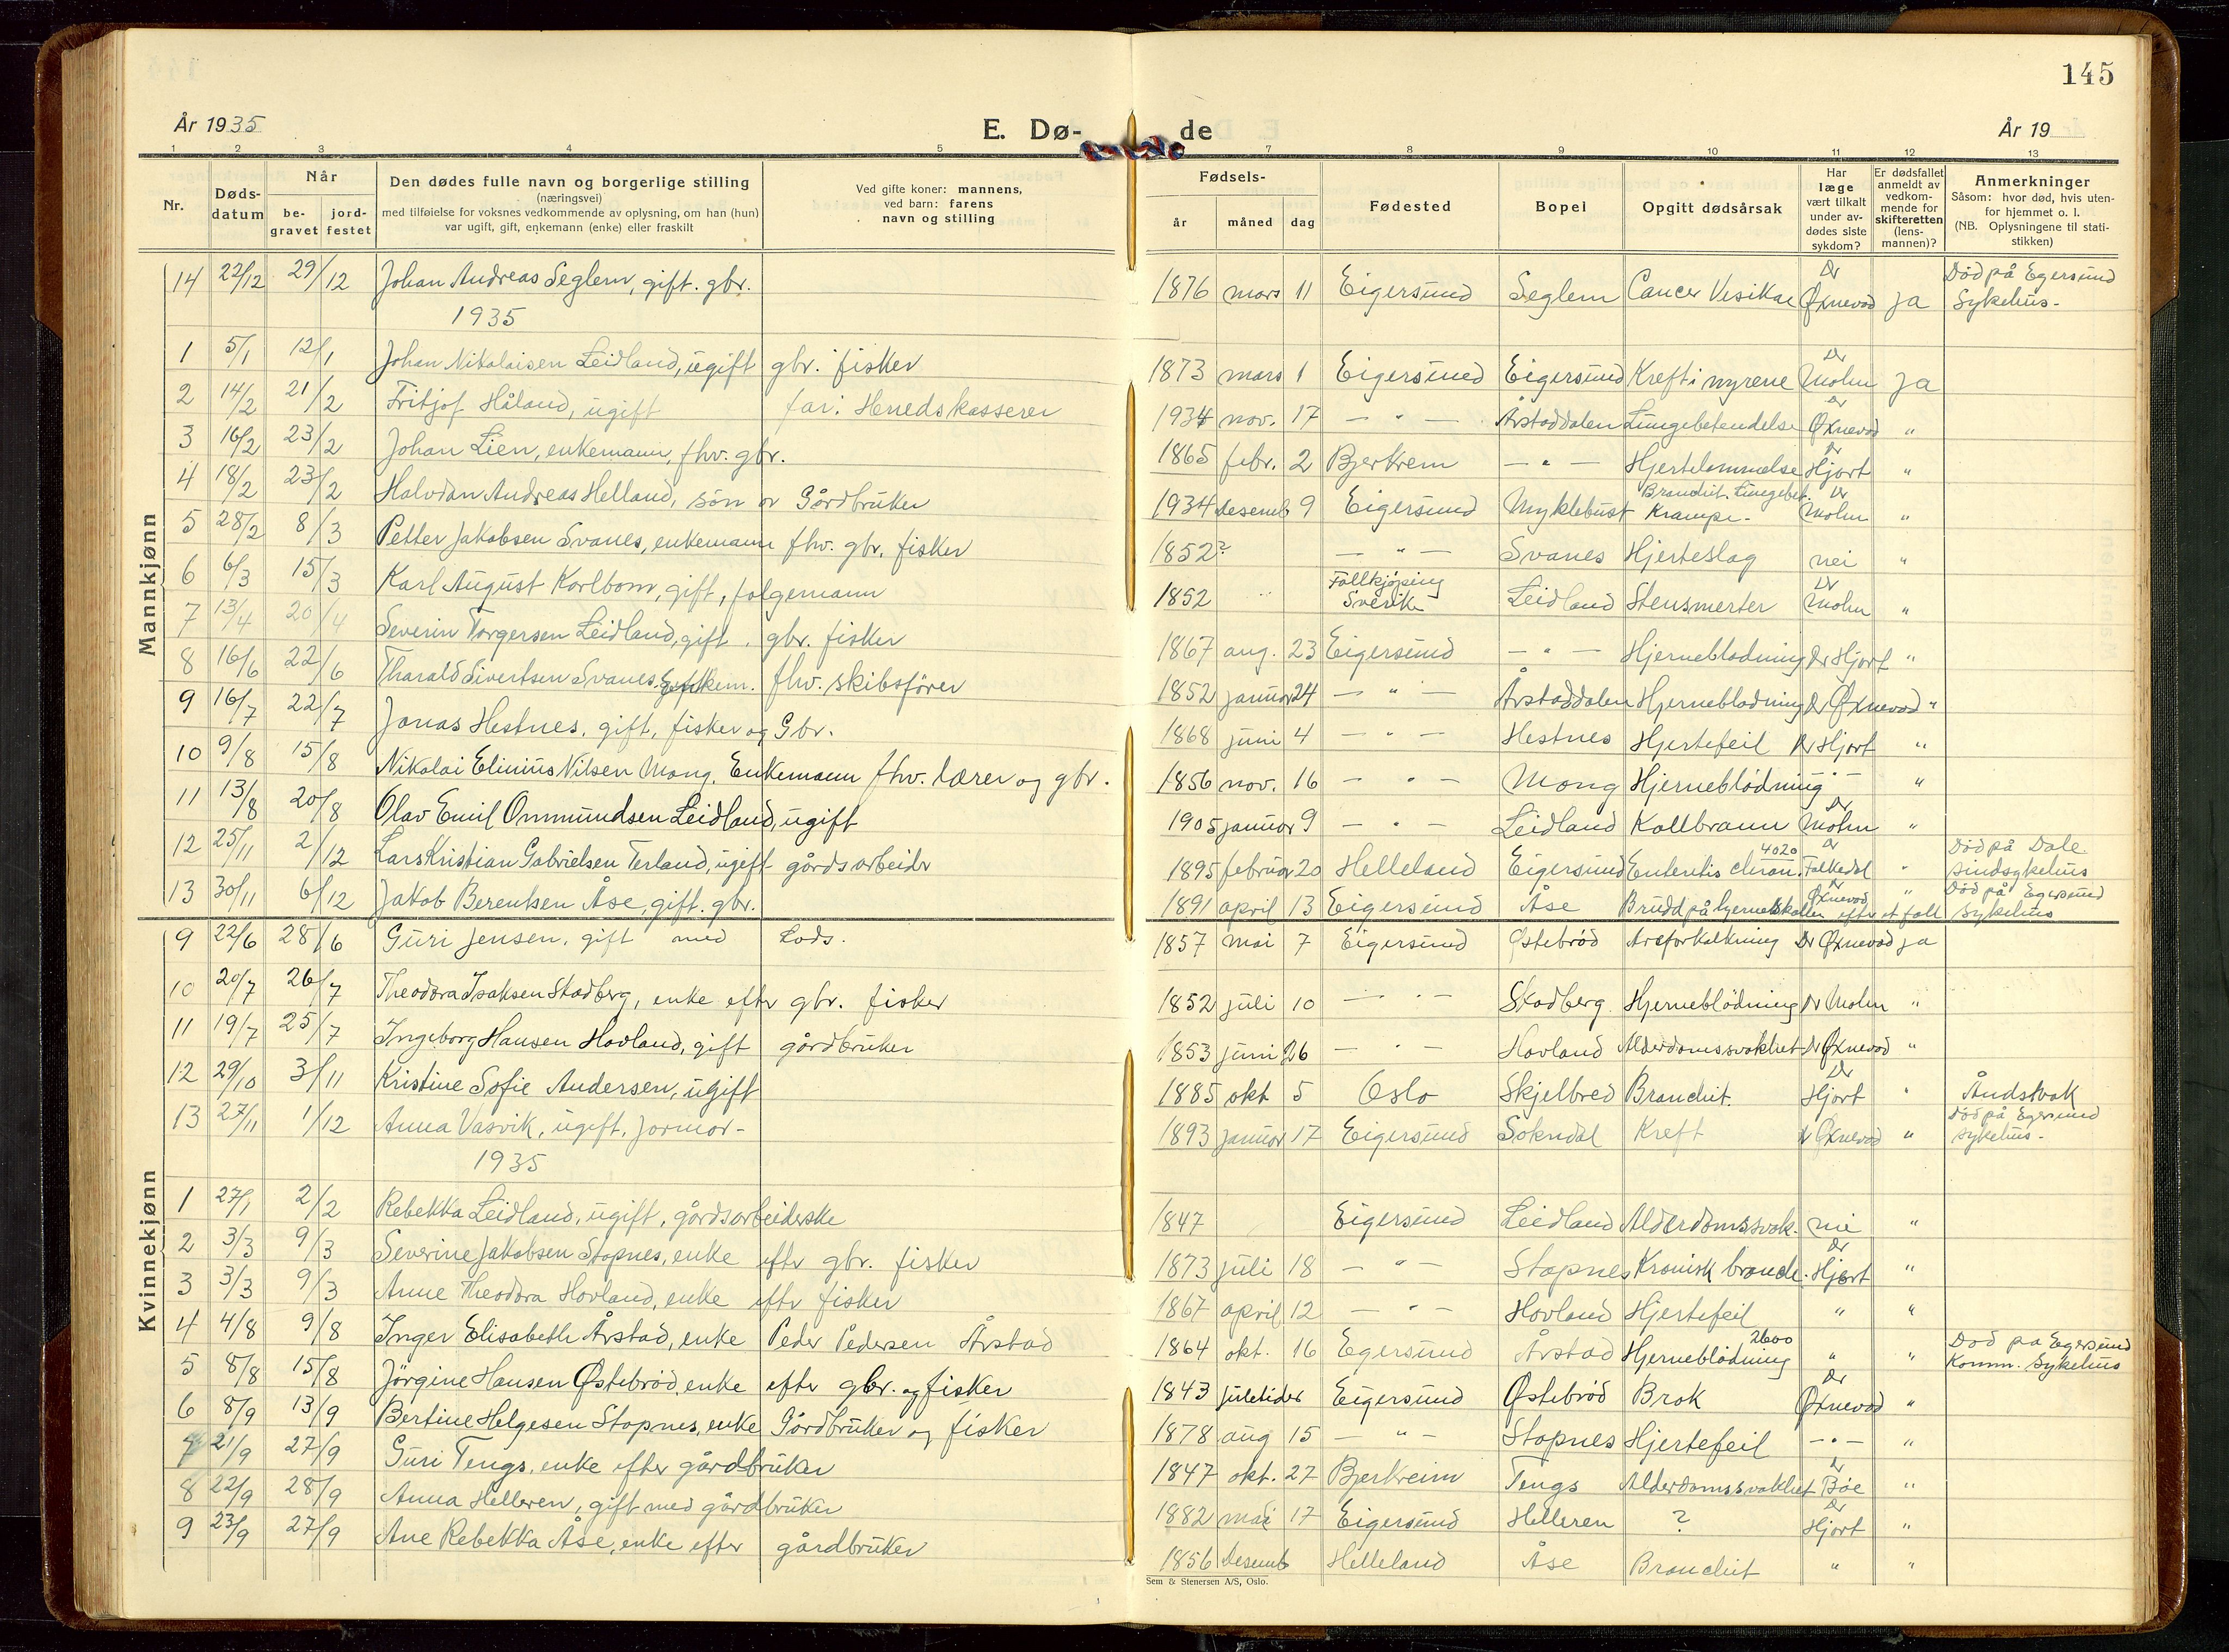 145
År 1935 E. Dø- de År 19
1 2 3 4 5 7 8 9 10 11 12 13
Nr. Dødsdatum Når begravet jordfestet Den dødes fulle navn og borgerlige stilling (næringsvei) med tilføielse for voksnes vedkommende av oplysning, om han (hun) var ugift, gift, enkemann (enke) eller fraskilt Ved gifte koner: mannens, ved barn: farens navn og stilling Fødsels- år måned dag Fødested Bopel Opgitt dødsårsak Har læge vært tilkalt under avdødes siste sykdom? Er dødsfallet anmeldt av vedkommende for skifteretten (lensmannen)? Anmerkninger Såsom: hvor død, hvis utenfor hjemmet o. l. (NB. Oplysningene til statistikken)
Mannkjønn
14 22/12 29/12 Johan Andreas Seglem, gift. gbr. 1876 mars 11 Eigersund Seglem Cancer Vesikae Dr Øxnevad ja Død på Egersund Sykehus.
1935
1 5/1 12/1 Johan Nikolaisen Leidland, ugift gbr. fisker 1873 mars 1 Eigersund Eigersund Kreft i nyrene Dr Mohn ja
2 14/2 21/2 Fritjof Håland, ugift far: Herredskasserer 1934 nov. 17 — " — Årstaddalen Lungebetendelse Dr Øxnevad "
3 16/2 23/2 Johan Lien, enkemann, fhv. gbr. 1865 febr. 2 Bjerkrem — " — Hjertelammelse Dr Hjort "
4 18/2 23/2 Halvdan Andreas Helland, søn av Gårdbruker 1934 desemb 9 Eigersund Myklebust Bronchit. Lungebet. Krampe. Dr Mohn "
5 28/2 8/3 Petter Jakobsen Svanes, enkemann fhv. gbr. fisker 1852? — " — Svanes Hjerteslag nei "
6 6/3 15/3 Karl August Karlbom, gift, folgemann 1852 Fallkjøping Sverik Leidland Stensmerter Dr Mohn "
7 13/4 20/4 Severin Torgersen Leidland, gift. gbr. fisker 1867 aug. 23 Eigersund — " — Hjerneblødning Dr Hjort "
8 16/6 22/6 Tharald Sivertsen Svanes. Enkem. fhv. skibsfører 1852 januar 24 — " — Årstaddalen Hjerneblødning Dr Øxnevad "
9 16/7 22/7 Jonas Hestnes, gift, fisker og Gbr. 1868 juni 4 — " — Hestnes Hjertefeil Dr Hjort "
10 9/8 15/8 Nikolai Elinius Nilsen Mong. Enkemann fhv. lærer og gbr. 1856 nov. 16 — " — Mong Hjerneblødning - " - "
11 13/8 20/8 Olav Emil Ommundsen Leidland, ugift 1905 januar 9 — " — Leidland Kollbrann Dr Mohn "
12 25/11 2/12 Lars Kristian Gabrielsen Terland, ugift gårdsarbeider 1895 februar 20 Helleland Eigersund Enteritis chron. 4020 Dr Falkedal " Død på Dale sindsykehus
13 30/11 6/12 Jakob Berentsen Åse, gift. gbr. 1891 april 13 Eigersund Åse Brudd på hjerneskallen efter et fall Dr Øxnevad " Død på Egersund Sykehus
Kvinnekjønn
9 22/6 28/6 Guri Jensen, gift med Lods. 1857 mai 7 Eigersund Østebrød Areforkalkning Dr Øxnevad ja
10 20/7 26/7 Theodora Isaksen Skadberg, enke efter gbr. fisker 1852 juli 10 — " — Skadberg Hjerneblødning Dr Mohn "
11 19/7 25/7 Ingeborg Hansen Hovland, gift gårdbruker 1853 juni 26 — " — Hovland Alderdomssvakhet Dr Øxnevad "
12 29/10 3/11 Kristine Sofie Andersen, ugift 1885 okt 5 Oslo Skjelbred Bronchit. Dr Hjort " Åndsvak
13 27/11 1/12 Anna Vasvik, ugift, jormor- 1893 januar 17 Eigersund Sokndal Kreft Dr Øxnevad " Død på Egersund sykehus.
1935
1 27/1 2/2 Rebekka Leidland, ugift, gårdsarbeiderske 1847 Eigersund Leidland Alderdomssvak. nei "
2 3/3 9/3 Severine Jakobsen Stapnes, enke efter gbr. fisker 1873 juli 18 — " — Stapnes Kronisk bronch. Dr Hjort "
3 3/3 9/3 Anne Theodora Hovland, enke eftr fisker 1867 april 12 — " — Hovland Hjertefeil " "
4 4/8 9/8 Inger Elisabeth Årstad, enke Peder Pedersen Årstad 1864 okt. 16 Egersund Årstad Hjerneblødning 2600 " " Død på Egersund Komm. Sykehus
5 8/8 15/8 Jörgine Hansen Østebrød, enke efter gbr. og fisker 1843 juletider Eigersund Østebrød Brok Dr Øxnevad "
6 8/9 13/9 Bertine Helgesen Stapnes, enke Gårdbruker og fisker 1878 aug 15 — " — Stapnes Hjertefeil — " — "
7 21/9 27/9 Guri Tengs, enke efter gårdbruker 1847 okt. 27 Bjerkreim Tengs Alderdomssvakhet Dr Bøe "
8 22/9 28/9 Anna Helleren, gift med gårdbruker 1882 mai 17 Eigersund Helleren ? Dr Hjort "
9 23/9 27/9 Ane Rebekka Åse, enke efter gårdbruker 1856 desemb Helleland Åse Bronchit " "
Sem & Stenersen A/S, Oslo.